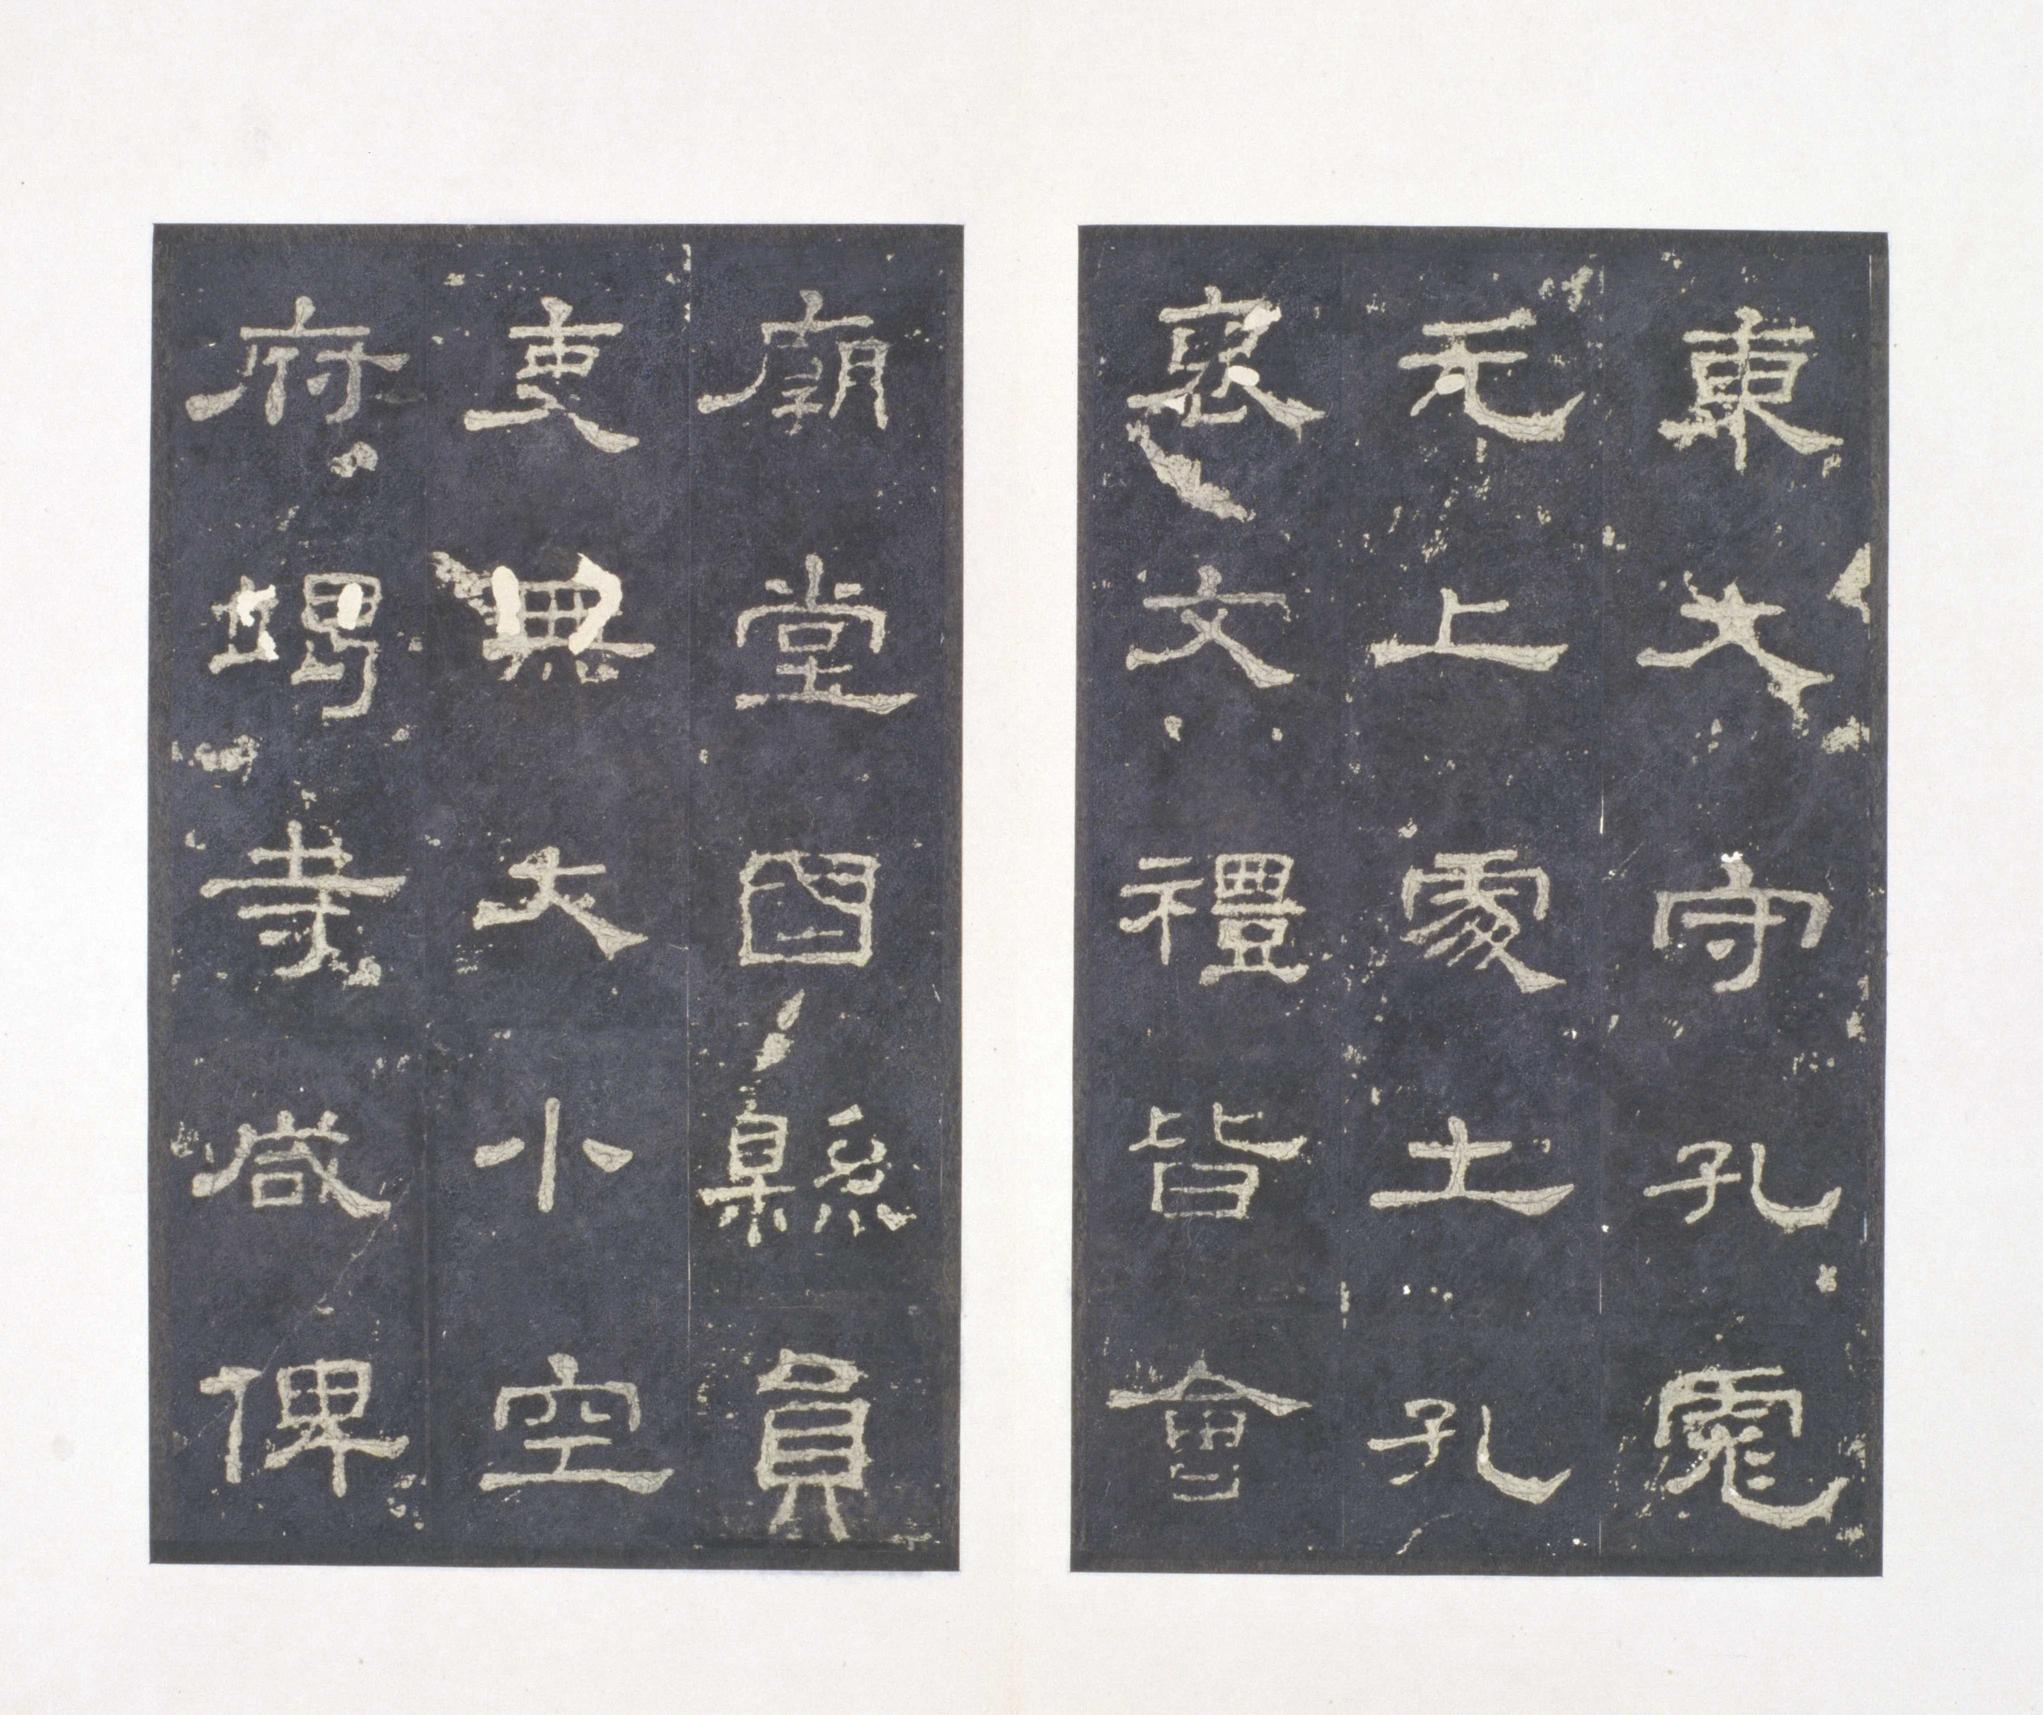 東大守孔彪
元上處士孔
襃文禮皆會
廟堂國縣員
吏無大小空
府竭寺咸俾